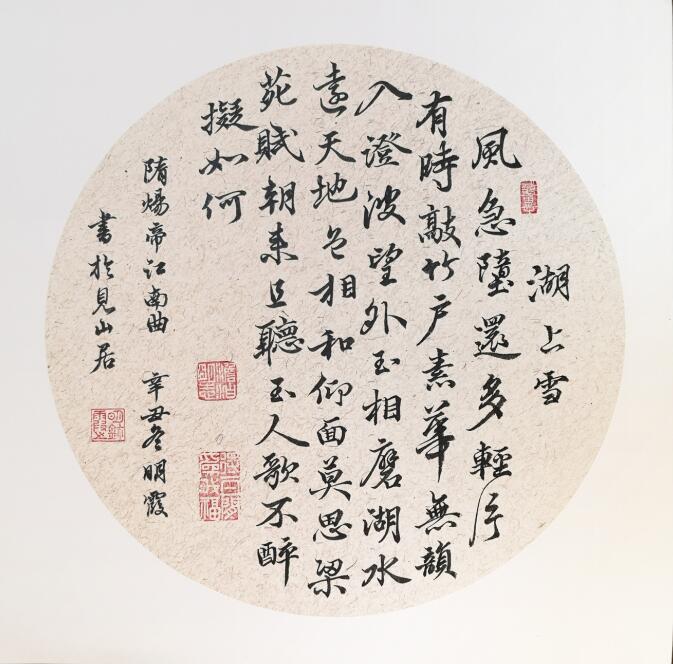 湖上雪
風急墮還多輕片
有時敲竹戶素華無韻
入澄波望外玉相磨湖水
遠天地色相和仰面莫思梁
苑賦朝來且聽玉人歌不醉
擬如何
隋煬帝江南曲 辛丑冬明霞
書於見山居